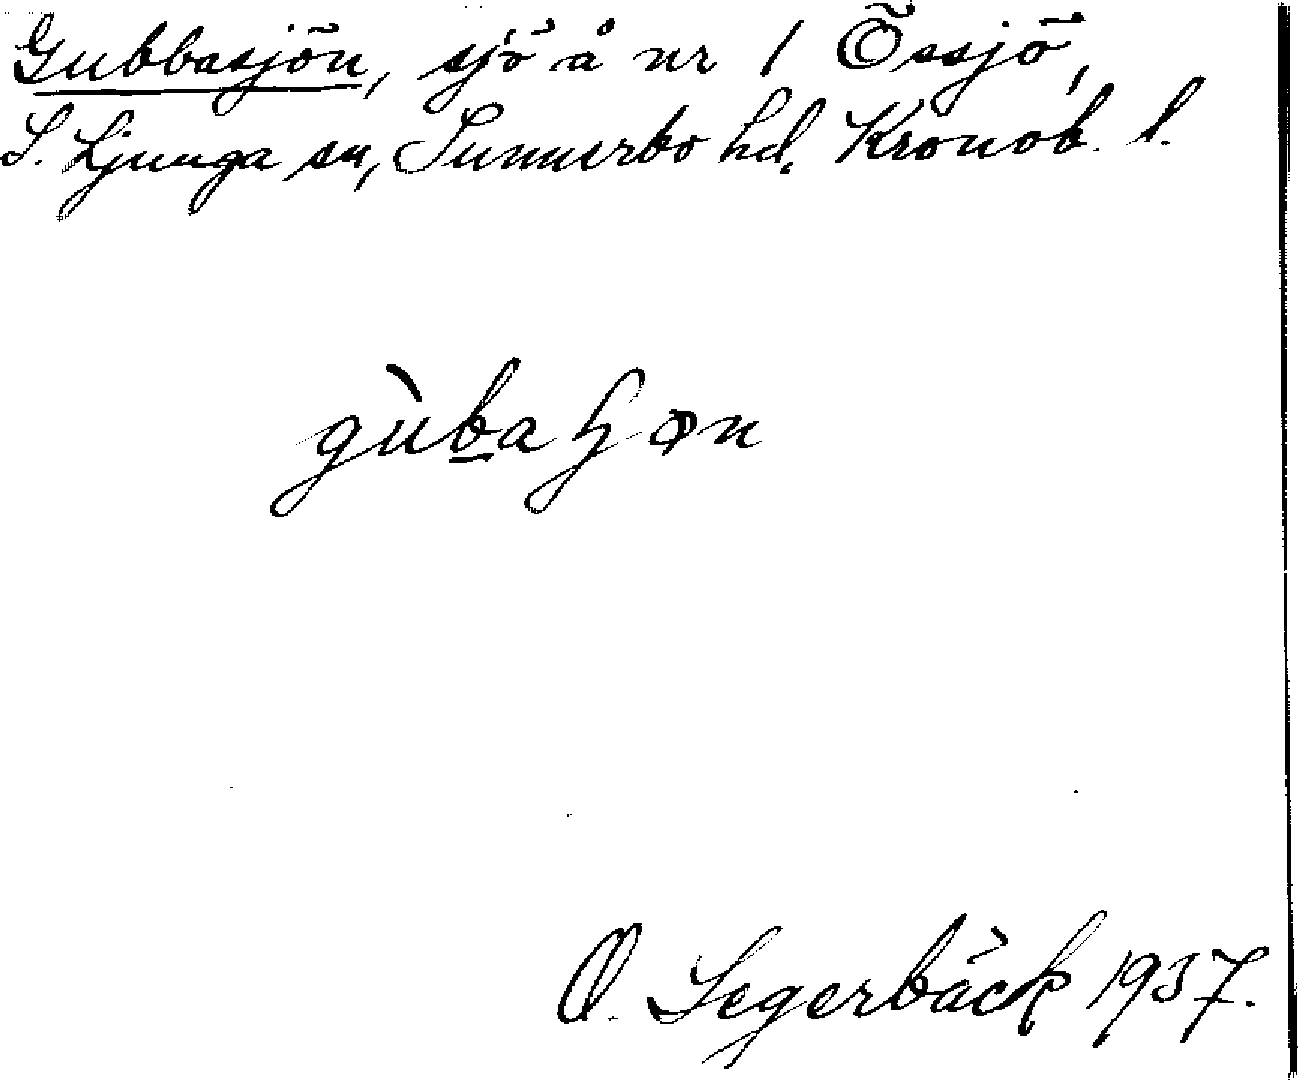 Gubbasjön, sjö å nr 1 Össjö,
S. Ljunga sn, Sunnerbo hd, Kronob. l.
gùb̲aɧøn
O. Segerbäck 1937.